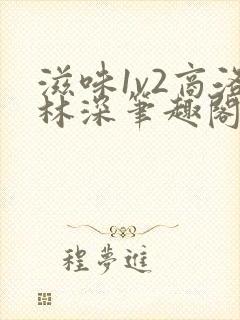 滋味1v2高洛
林深笔趣阁
程夢進